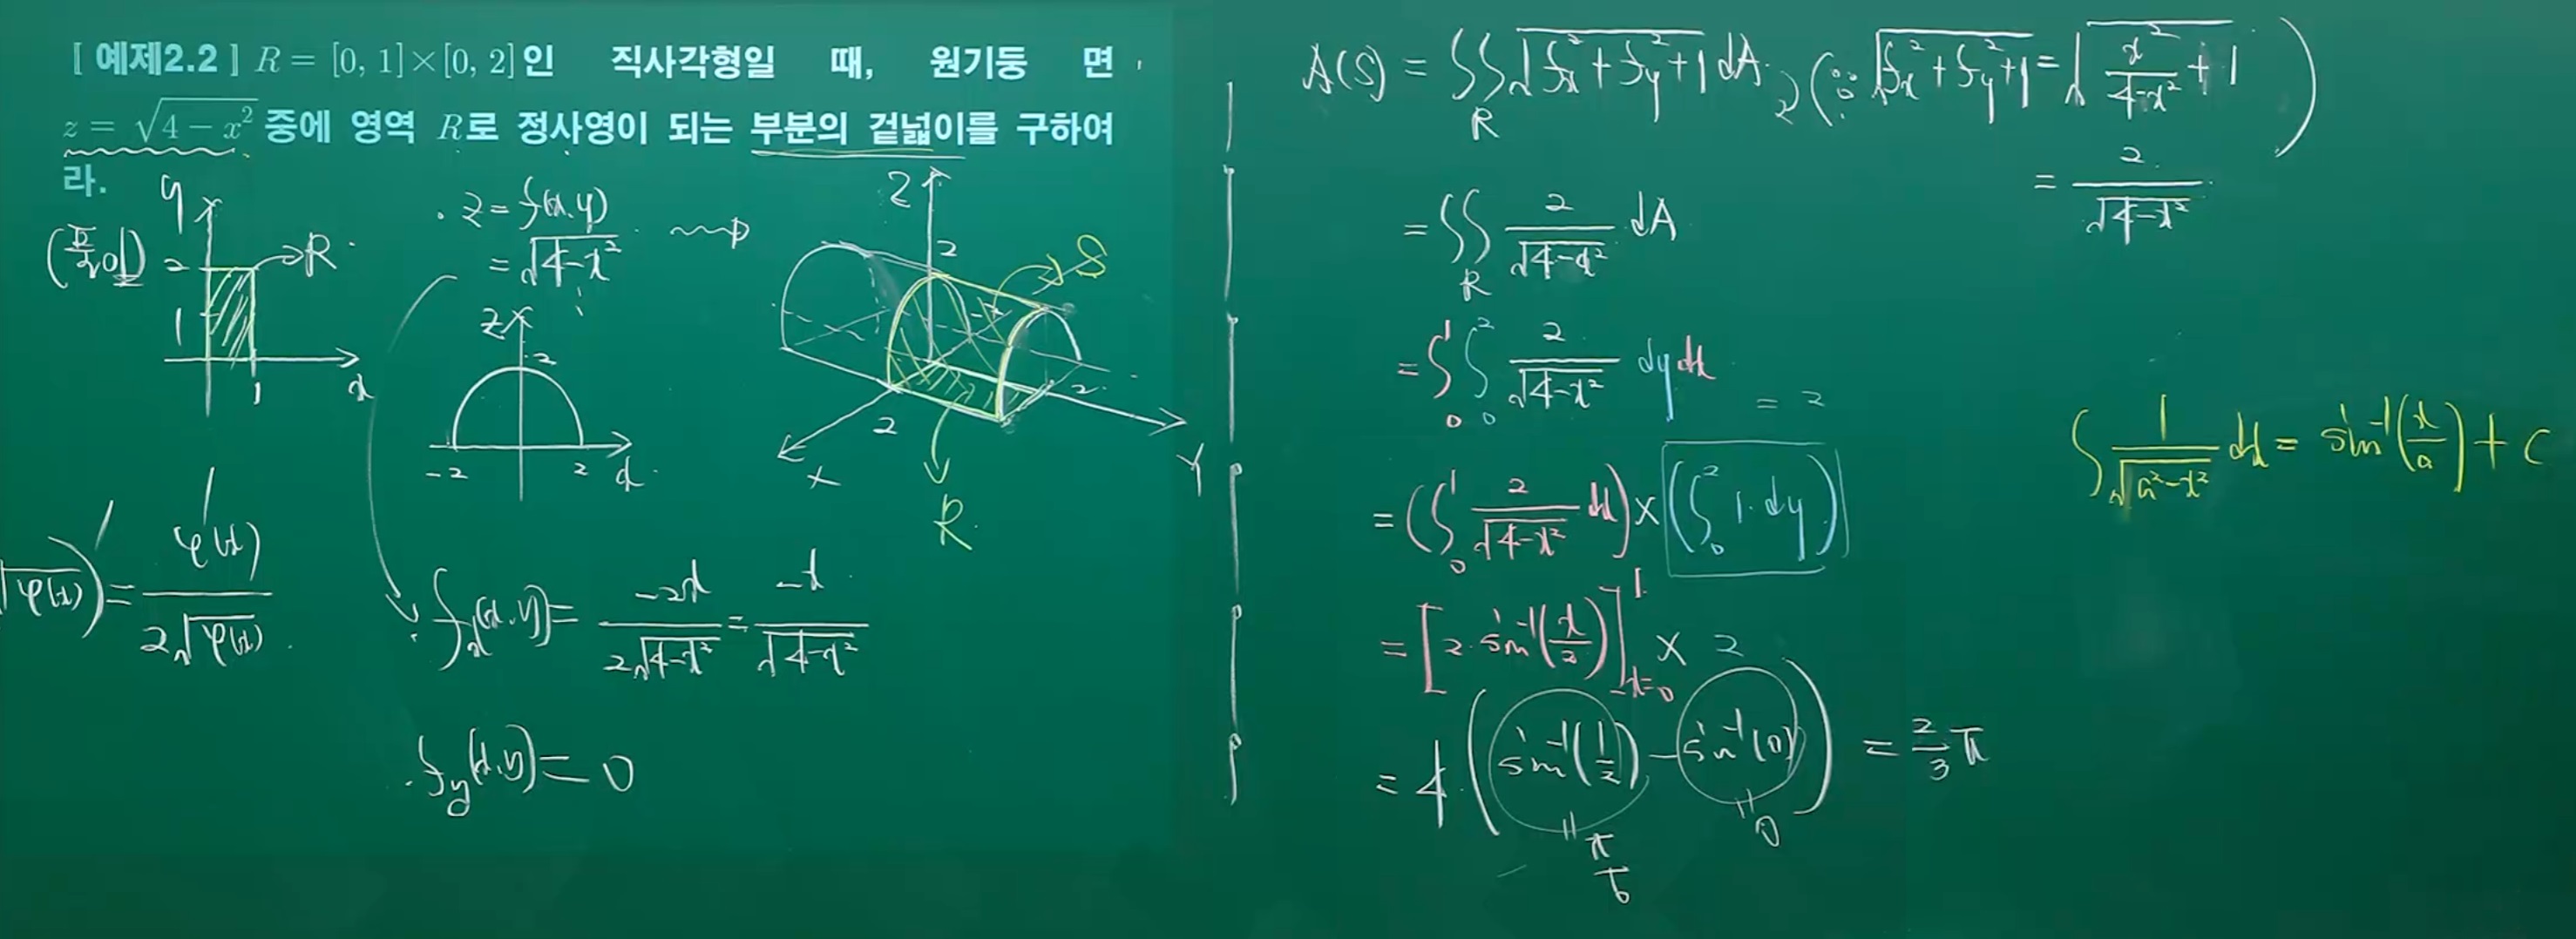 [ 예제2.2 ] R = [0, 1]×[0, 2]인 직사각형일 때, 원기둥 면
z = √(4 − x²) 중에 영역 R로 정사영이 되는 부분의 겉넓이를 구하여
라.
(풀이)
y
2
1
1
x
R
z = f(x,y)
= √(4-x²)
z
2
-2
2
x
Z
2
S
2
2
X
Y
R
√φ(x))' = φ'(x) / 2√φ(x)
f_x(x,y) = -2x / 2√(4-x²) = -x / √(4-x²)
f_y(x,y) = 0
A(S) = ∬_R √(f_x² + f_y² + 1) dA (∵ √(f_x² + f_y² + 1) = √(x²/(4-x²) + 1)
= 2/√(4-x²) )
= ∬_R 2/√(4-x²) dA
= ∫₀¹ ∫₀² 2/√(4-x²) dy dx
= 2
= (∫₀¹ 2/√(4-x²) dx) × (∫₀² 1 dy)
∫ 1/√(a²-x²) dx = sin⁻¹(x/a) + C
= [2·sin⁻¹(x/2)]_{x=0}^{1} × 2
= 4·(sin⁻¹(1/2) - sin⁻¹(0)) = 2/3 π
= π/6
= 0